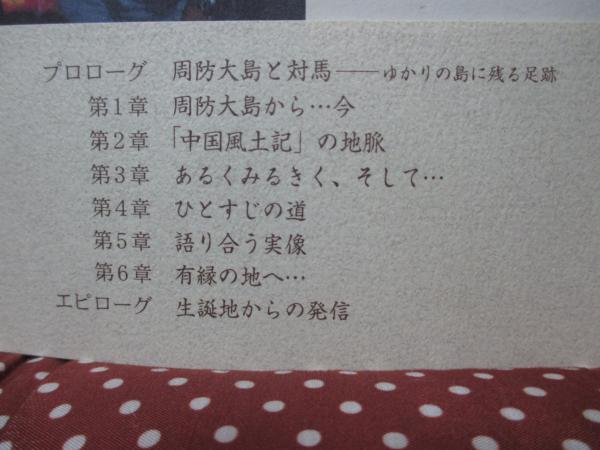 プロローグ 周防大島と対馬――ゆかりの島に残る足跡
第1章 周防大島から…今
第2章 「中国風土記」の地脈
第3章 あるくみるきく、そして…
第4章 ひとすじの道
第5章 語り合う実像
第6章 有縁の地へ…
エピローグ 生誕地からの発信